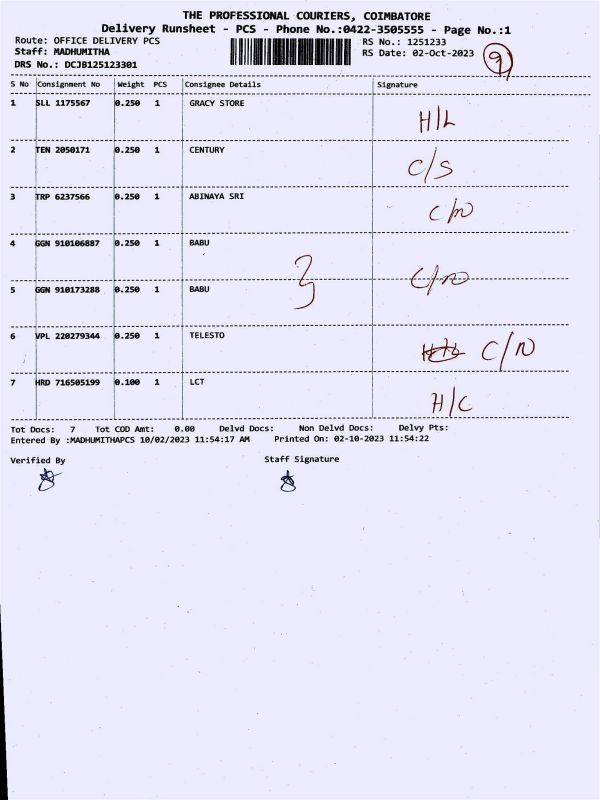 THE PROFESSIONAL COURIERS, COIMBATORE
Delivery Runsheet - PCS - Phone No.:0422-3505555 - Page No.:1
Route: OFFICE DELIVERY PCS
RS No.: 1251233
Staff: MADHUMITHA
RS Date: 02-Oct-2023
9
DRS No.: DCJB125123301
S No Consignment No Weight PCS Consignee Details Signature
1 SLL 1175567 0.250 1 GRACY STORE H/L
2 TEN 2050171 0.250 1 CENTURY C/S
3 TRP 6237566 0.250 1 ABINAYA SRI C/N
4 GGN 910106887 0.250 1 BABU
5 GGN 910173288 0.250 1 BABU C/N
6 VPL 220279344 0.250 1 TELESTO C/N
7 HRD 716505199 0.100 1 LCT H/C
Tot Docs: 7 Tot COD Amt: 0.00 Delvd Docs: Non Delvd Docs: Delvy Pts:
Entered By :MADHUMITHAPCS 10/02/2023 11:54:17 AM Printed On: 02-10-2023 11:54:22
Verified By Staff Signature